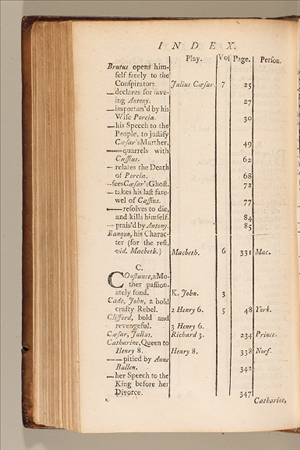 INDEX.
Play. Vol Page. Person.
Brutus opens him-
self freely to the
Conspirators. Julius Cæsar 7 25
—declares for sav-
ing Antony. 27
—importun'd by his
Wife Porcia. 30
—his Speech to the
People, to justify
Cæsar's Murther. 49
—quarrels with
Cassius. 62
—relates the Death
of Porcia. 68
—sees Cæsar's Ghost. 72
—takes his last fare-
wel of Cassius. 77
—resolves to die,
and kills himself. 84
—prais'd by Antony. 85
Banquo, his Charac-
ter (for the rest,
vid. Macbeth.) Macbeth. 6 331 Mac.
C.
COnstance, a Mo-
ther passion-
ately fond. K. John. 3
Cade, John, a bold
crafty Rebel. 2 Henry 6. 5 48 York.
Clifford, bold and
revengeful. 3 Henry 6.
Cæsar, Julius. Richard 3. 234 Prince.
Catharine, Queen to
Henry 8. Henry 8. 338 Norf.
—pitied by Anne
Bullen. 342
—her Speech to the
King before her
Divorce. 347
Catharine,